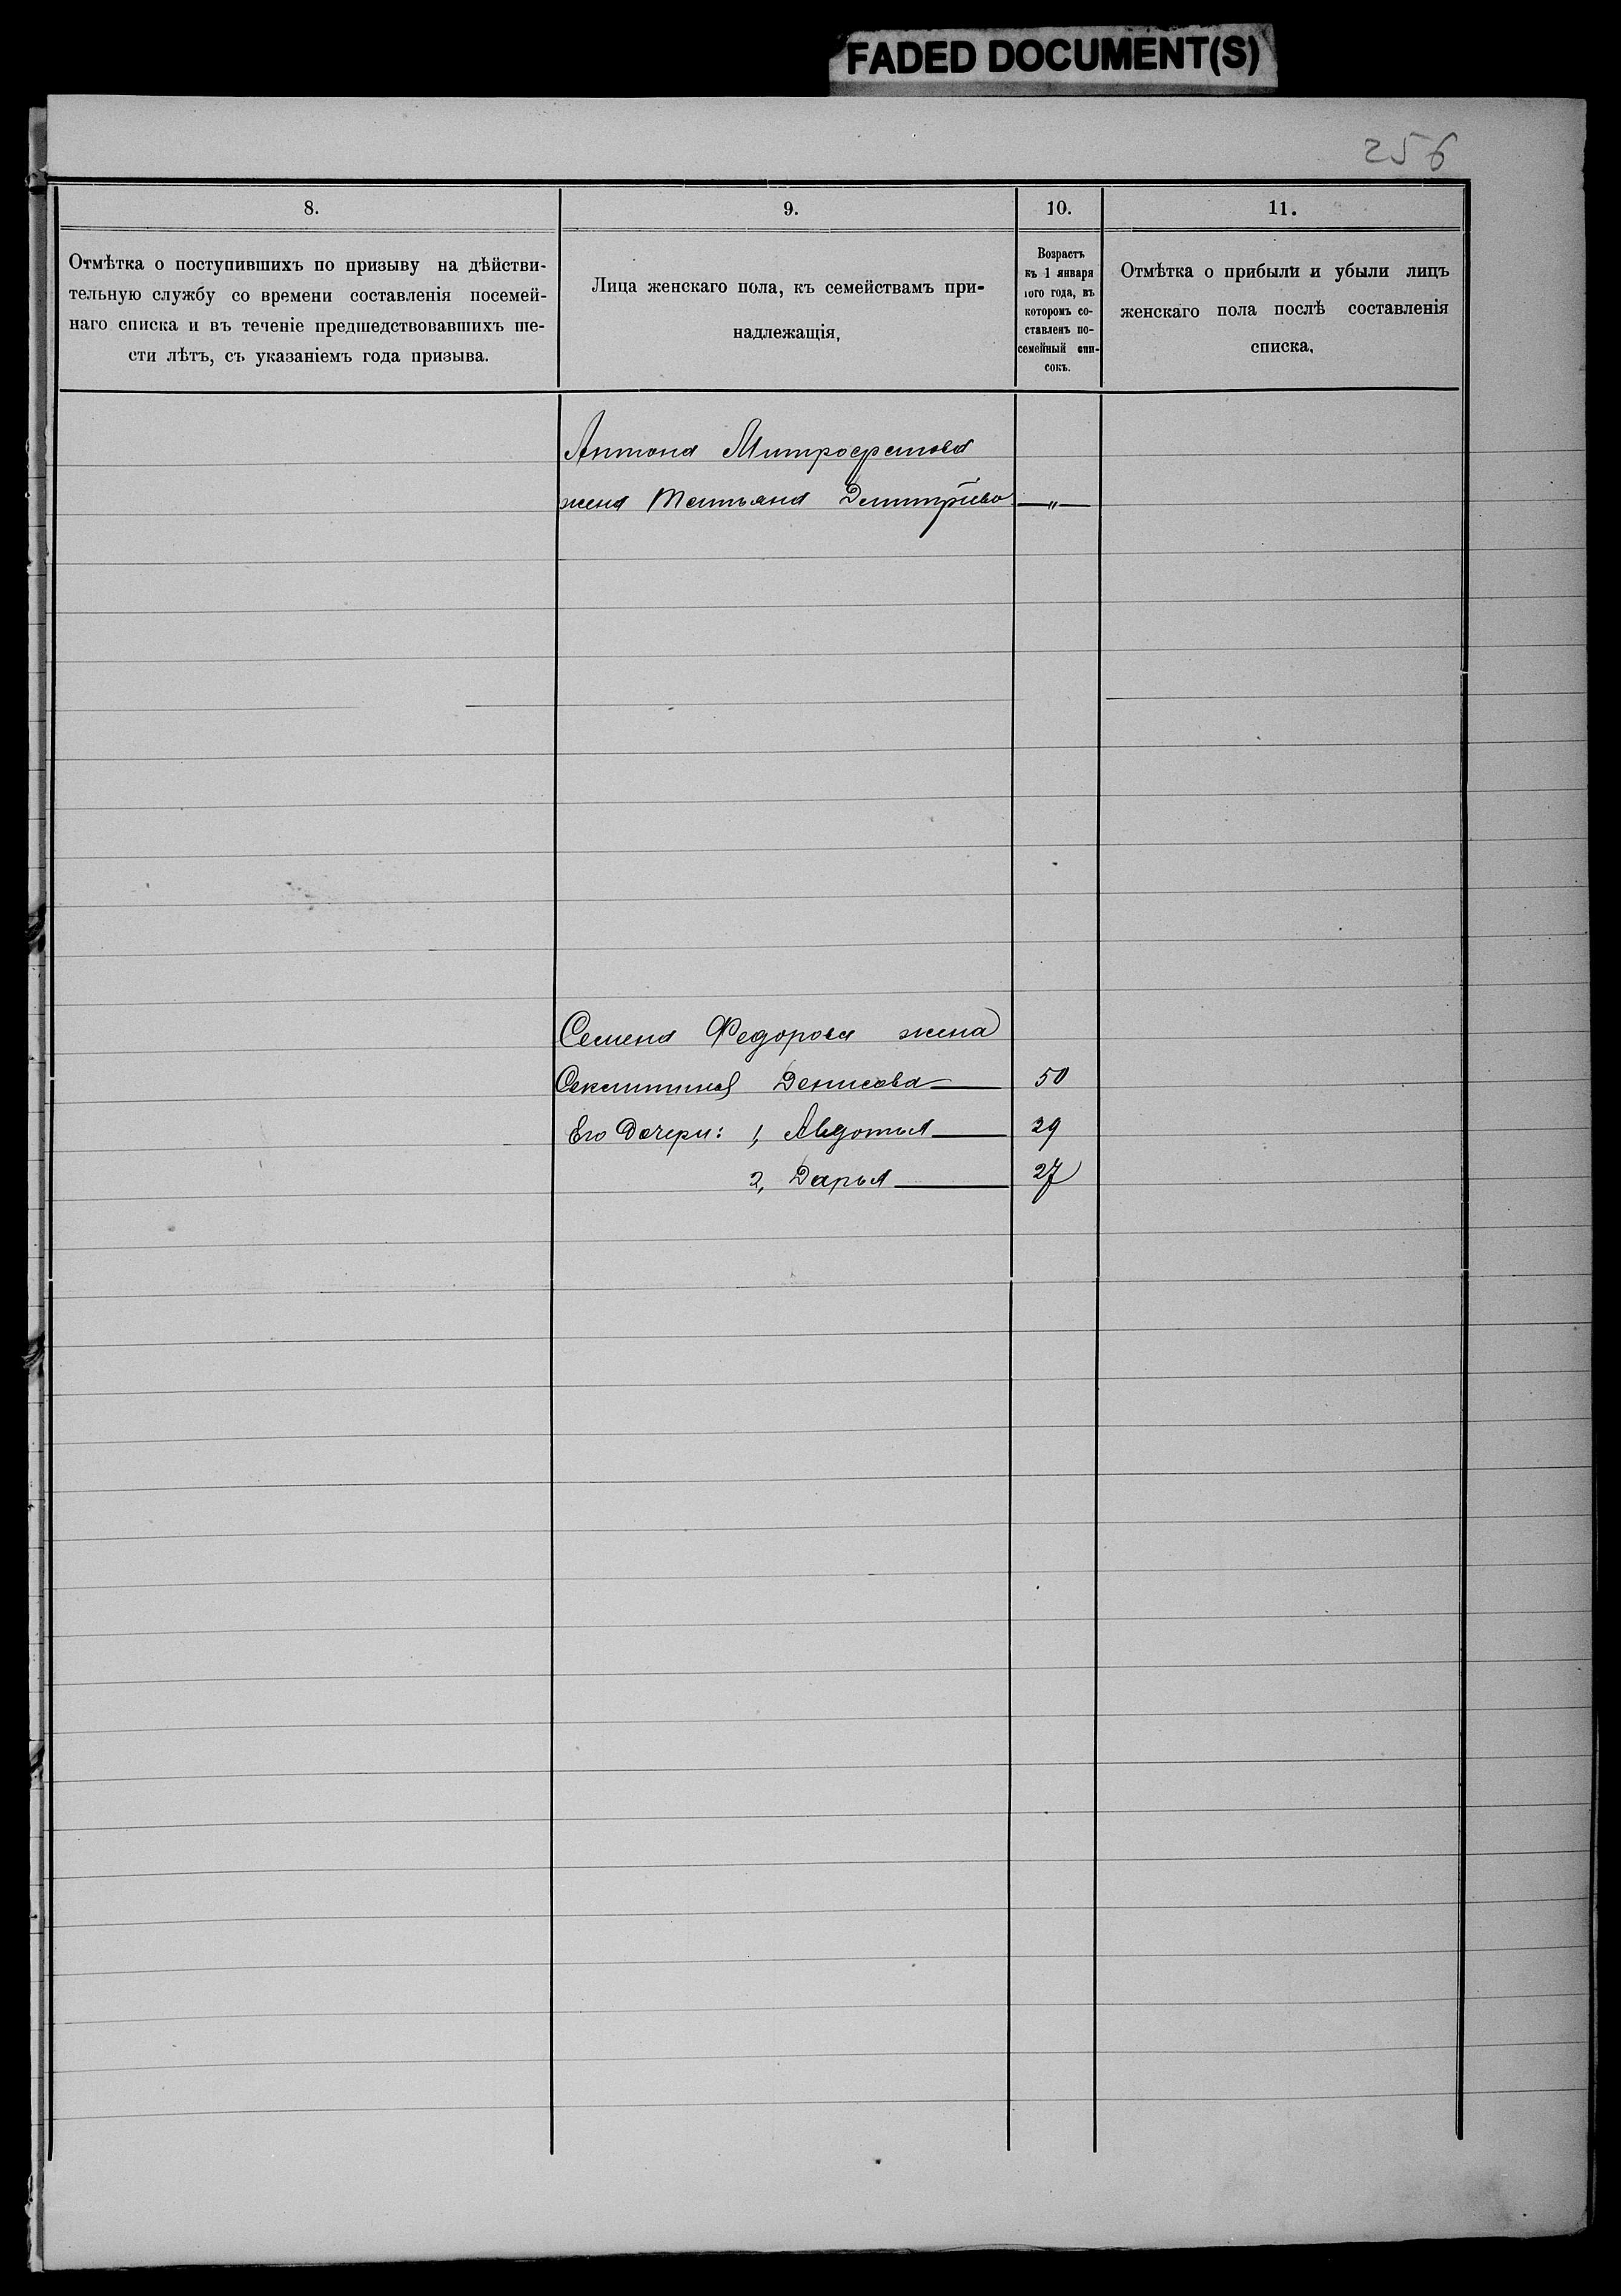 FADED DOCUMENT(S)
256
8.
9.
10.
11.
Отмѣтка о поступившихъ по призыву на дѣйстви-
тельную службу со времени составленія посемей-
наго списка и въ теченіе предшедствовавшихъ ше-
сти лѣтъ, съ указаніемъ года призыва.
Лица женскаго пола, къ семействамъ при-
надлежащія,
Возрастъ
къ 1 января
того года, въ
которомъ со-
ставленъ по-
семейный спи-
сокъ.
Отмѣтка о прибыли и убыли лицъ
женскаго пола послѣ составленія
списка,
Антона Митрофанова
жена Татьяна Дмитріева — „ —
Семена Федорова жена
Секлитинія Денисова — 50
Его Дочери: 1, Авдотья — 29
2, Дарья — 27